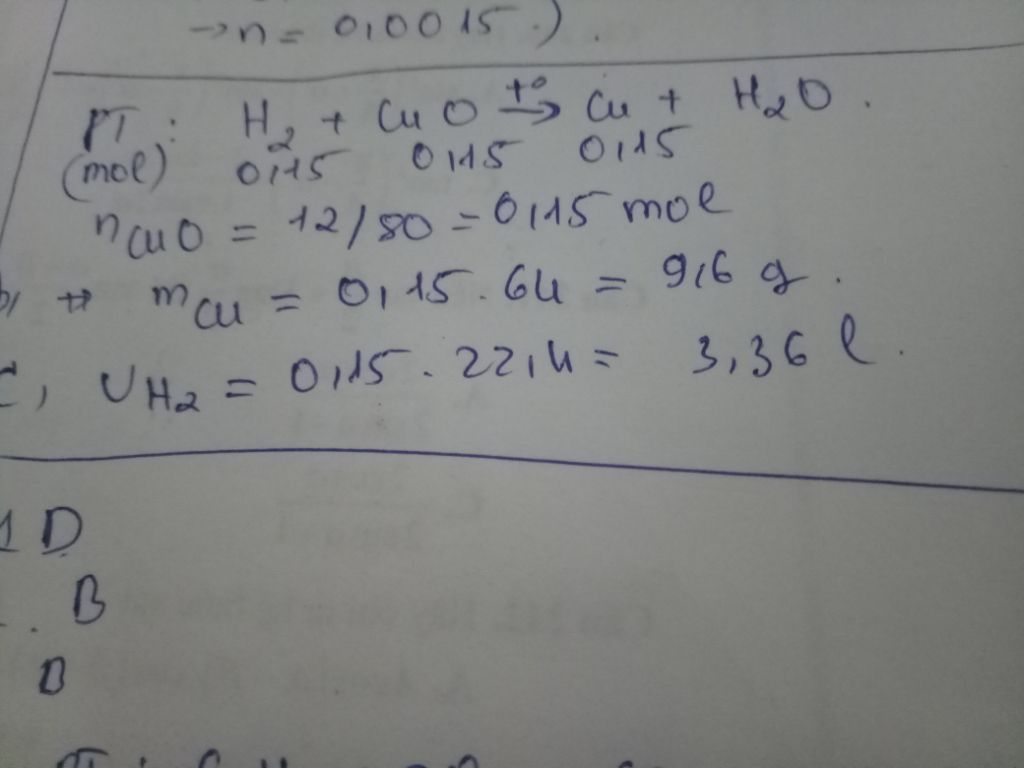 →n = 0,0015.).
PT: H₂ + CuO →t° Cu + H₂O.
(mol) 0,15 0,15 0,15
nCuO = 12/80 = 0,15 mol
b, → mCu = 0,15.64 = 9,6 g.
c, VH₂ = 0,15.22,4 = 3,36 l.
1 D
B